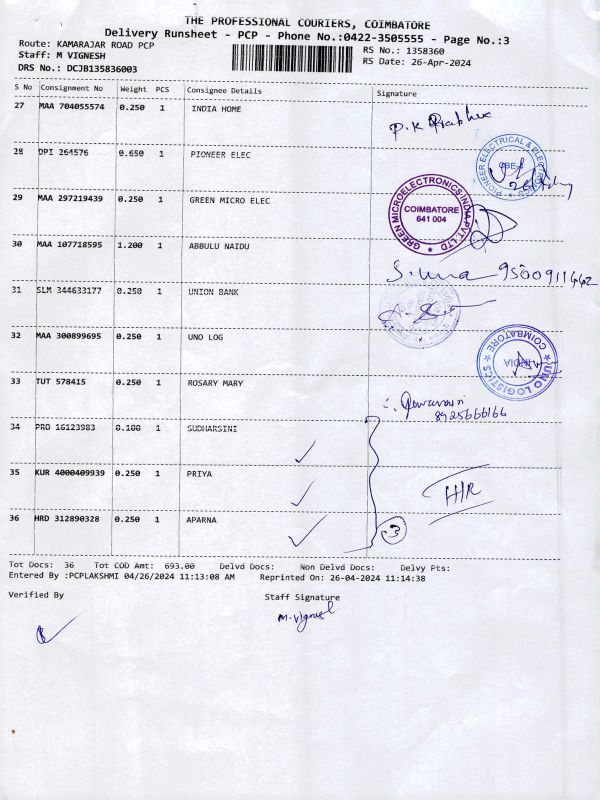 THE PROFESSIONAL COURIERS, COIMBATORE
Delivery Runsheet - PCP - Phone No.:0422-3505555 - Page No.:3
Route: KAMARAJAR ROAD PCP
RS No.: 1358360
Staff: M VIGNESH
RS Date: 26-Apr-2024
DRS No.: DCJB135836003
S No Consignment No Weight PCS Consignee Details Signature
27 MAA 704055574 0.250 1 INDIA HOME
P.K Prabhu
28 DPI 264576 0.650 1 PIONEER ELEC
PIONEER ELECTRICAL & ELECTRONICS
CBE-4
29 MAA 297219439 0.250 1 GREEN MICRO ELEC
GREEN MICROELECTRONICS INDIA PVT LTD
COIMBATORE
641 004
30 MAA 107718595 1.200 1 ABBULU NAIDU
S. Uma 9500911442
31 SLM 344633177 0.250 1 UNION BANK
32 MAA 300899695 0.250 1 UNO LOG
UNO LOGISTICS
COIMBATORE
INDIA
33 TUT 578415 0.250 1 ROSARY MARY
8925666166
34 PRO 16123983 0.100 1 SUDHARSINI
35 KUR 4000409939 0.250 1 PRIYA
HR
36 HRD 312890328 0.250 1 APARNA
3
Tot Docs: 36 Tot COD Amt: 693.00 Delvd Docs: Non Delvd Docs: Delvy Pts:
Entered By :PCPLAKSHMI 04/26/2024 11:13:08 AM Reprinted On: 26-04-2024 11:14:38
Verified By Staff Signature
M. Vignesh